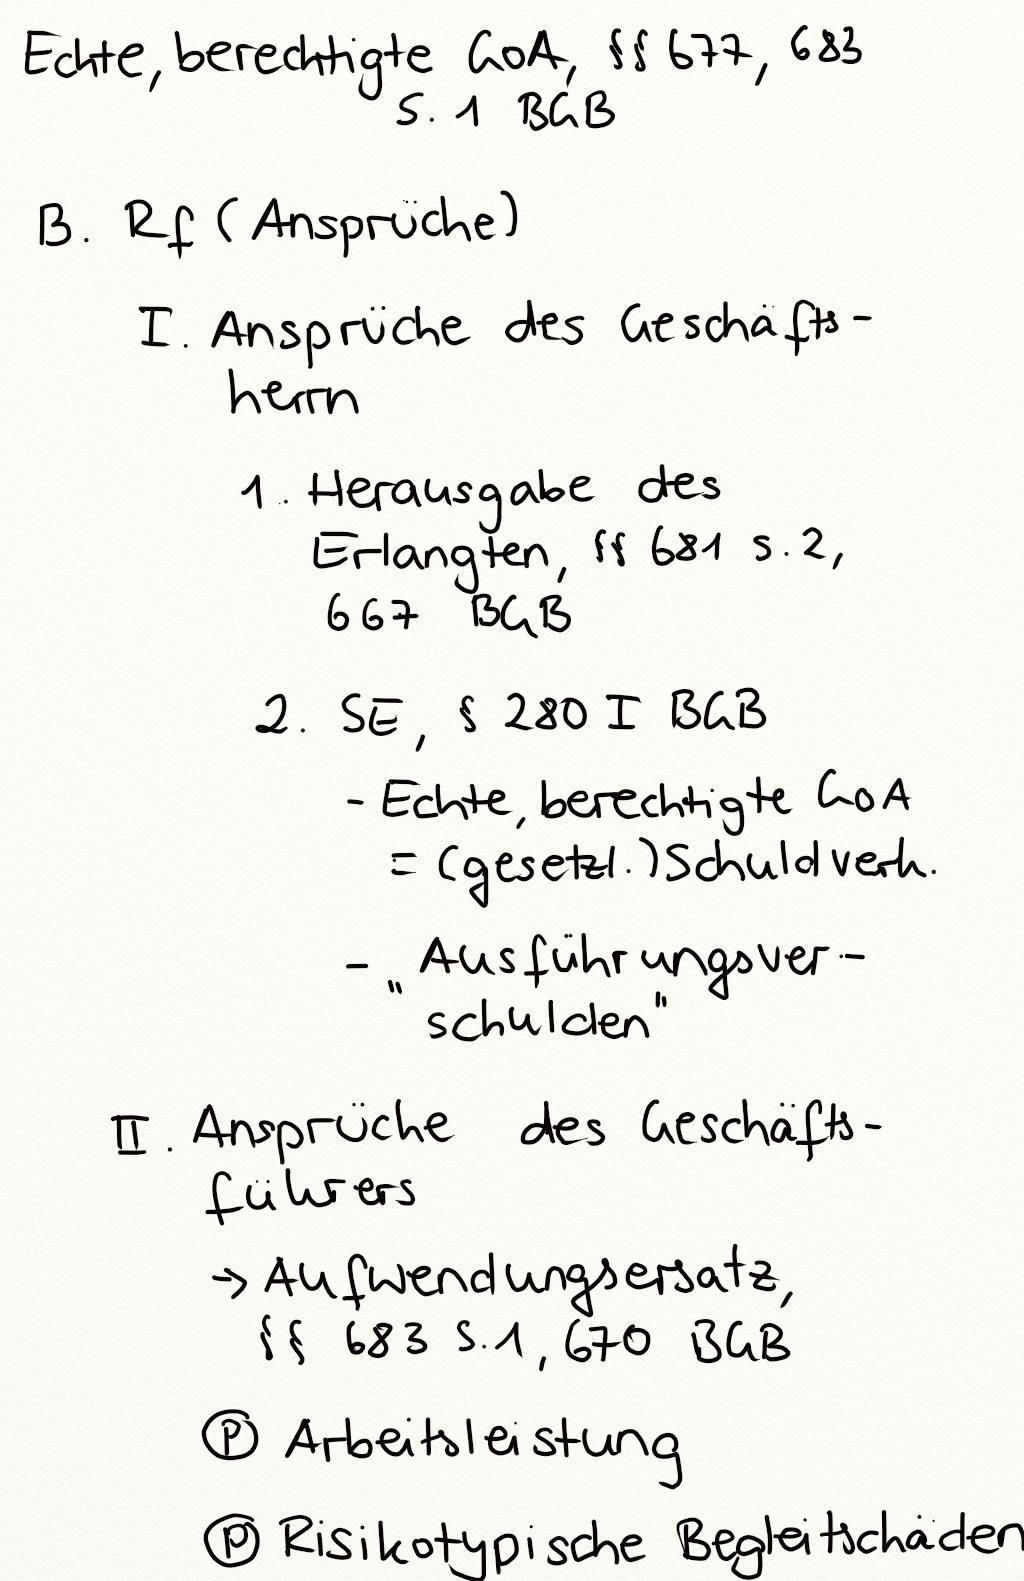 Echte, berechtigte GoA, §§ 677, 683
S. 1 BGB
B. Rf (Ansprüche)
I. Ansprüche des Geschäfts-
herrn
1. Herausgabe des
Erlangten, §§ 681 S. 2,
667 BGB
2. SE, § 280 I BGB
- Echte, berechtigte GoA
= (gesetzl.) Schuldverh.
- „Ausführungsver-
schulden"
II. Ansprüche des Geschäfts-
führers
→ Aufwendungsersatz,
§§ 683 S. 1, 670 BGB
Ⓟ Arbeitsleistung
Ⓟ Risikotypische Begleitschäden